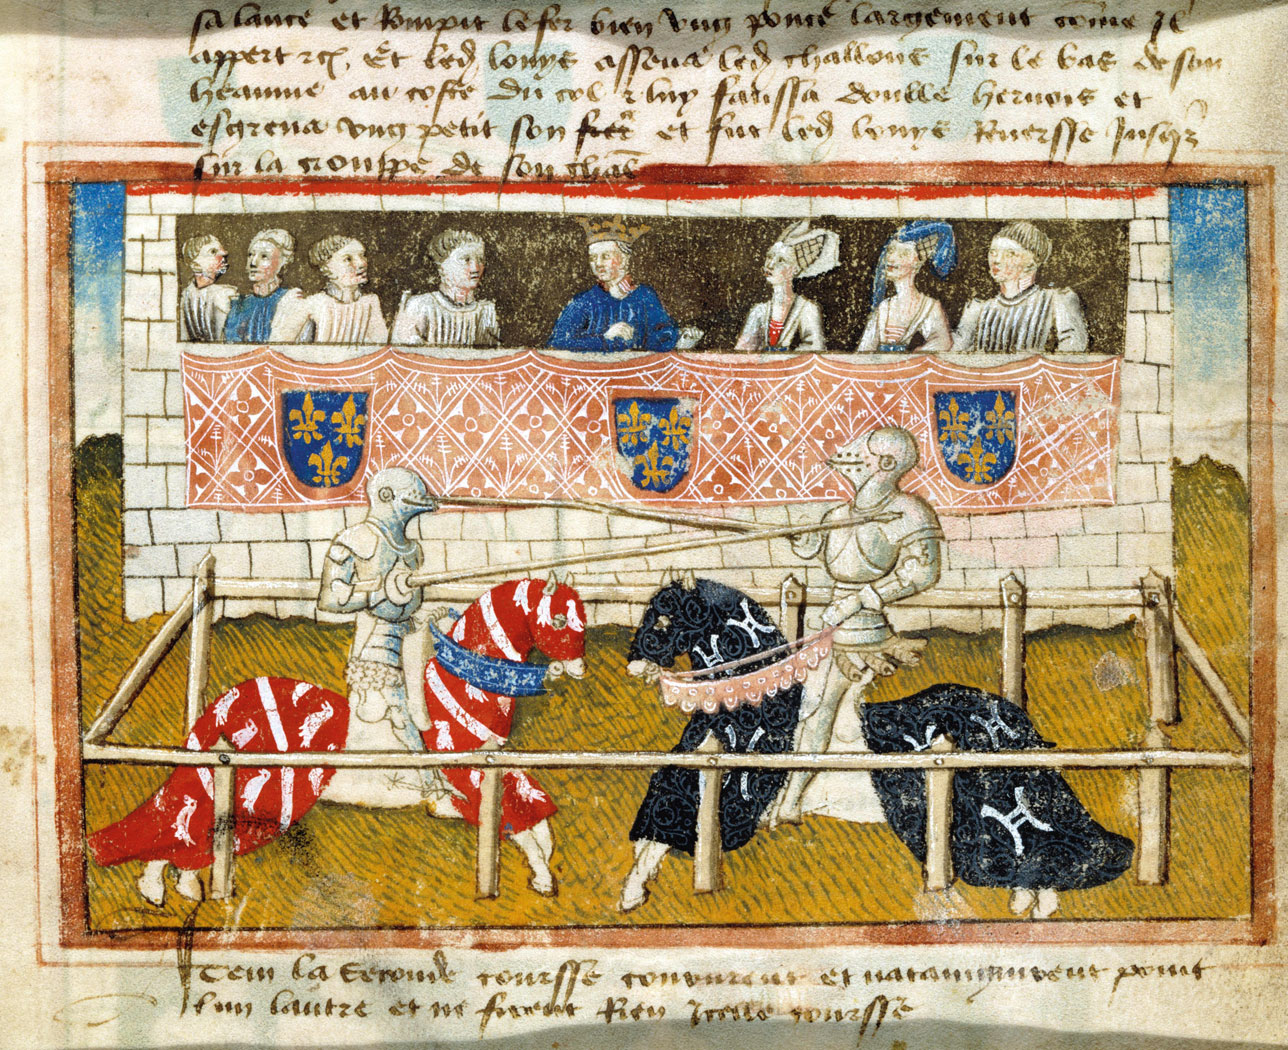 sa lance et Rompit le fer bien ung poulce largement come Il
appert ycy. Et led louys assena led challons sur le bas de son
heaume au coste du col & luy faussa double hernois et
esgrena ung petit son fer et fut led louys Reversse Jusqs
sur la crouppe de son chal
Item la Seconde coursse coururent et natamgnirent point
lun lautre et ne firent Rien Icelle coursse